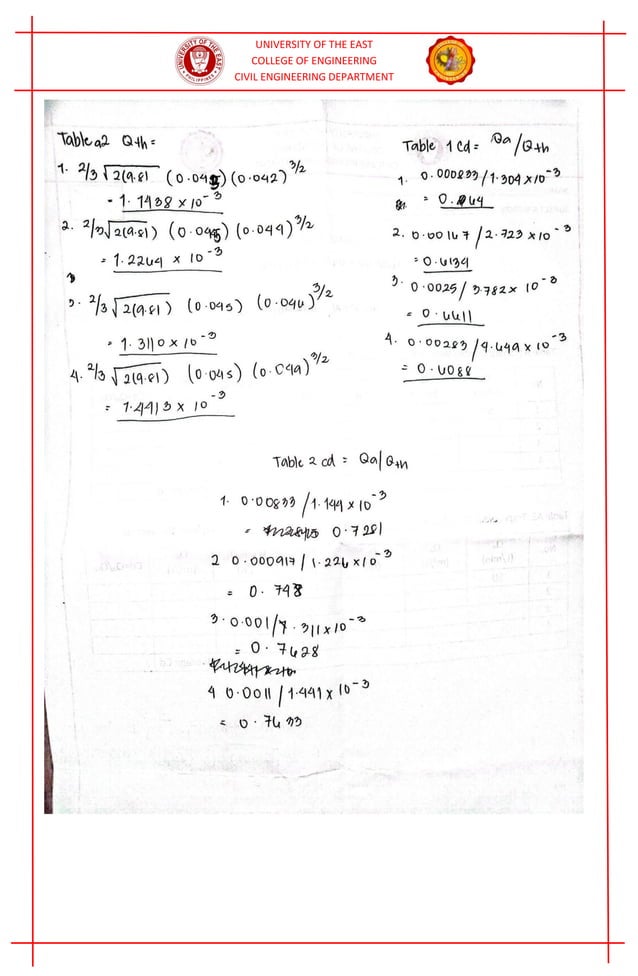 UNIVERSITY OF THE EAST
COLLEGE OF ENGINEERING
CIVIL ENGINEERING DEPARTMENT
Table a2 Qth =
1. 2/3 √2(9.81 (0.045)(0.042)^3/2
= 1.1438 x 10^-3
2. 2/3 √2(9.81) (0.045) (0.044)^3/2
= 1.2264 x 10^-3
3. 2/3 √2(9.81) (0.045) (0.046)^3/2
= 1.3110 x 10^-3
4. 2/3 √2(9.81) (0.045) (0.049)^3/2
= 1.4413 x 10^-3
Table 1 Cd = Qa/Qth
1. 0.000833/1.304 x10^-3
= 0.64
2. 0.00167/2.723 x10^-3
= 0.6134
3. 0.0025/3.782x 10^-3
= 0.6611
4. 0.00283/4.649 x 10^-3
= 0.6088
Table 2 cd = Qa/Qth
1. 0.00833/1.144 x 10^-3
= 0.7281
2 0.000917/1.226 x10^-3
= 0.748
3. 0.001/1.311x10^-3
= 0.7628
4 0.0011/1.441 x 10^-3
= 0.7633